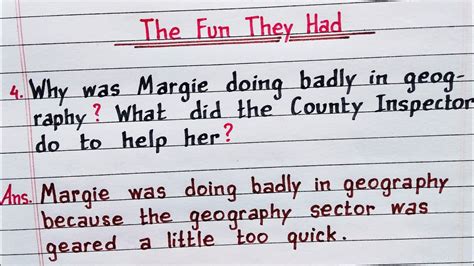 The Fun They Had
4. Why was Margie doing badly in geog-
raphy? What did the County Inspector
do to help her?
Ans. Margie was doing badly in geography
because the geography sector was
geared a little too quick.